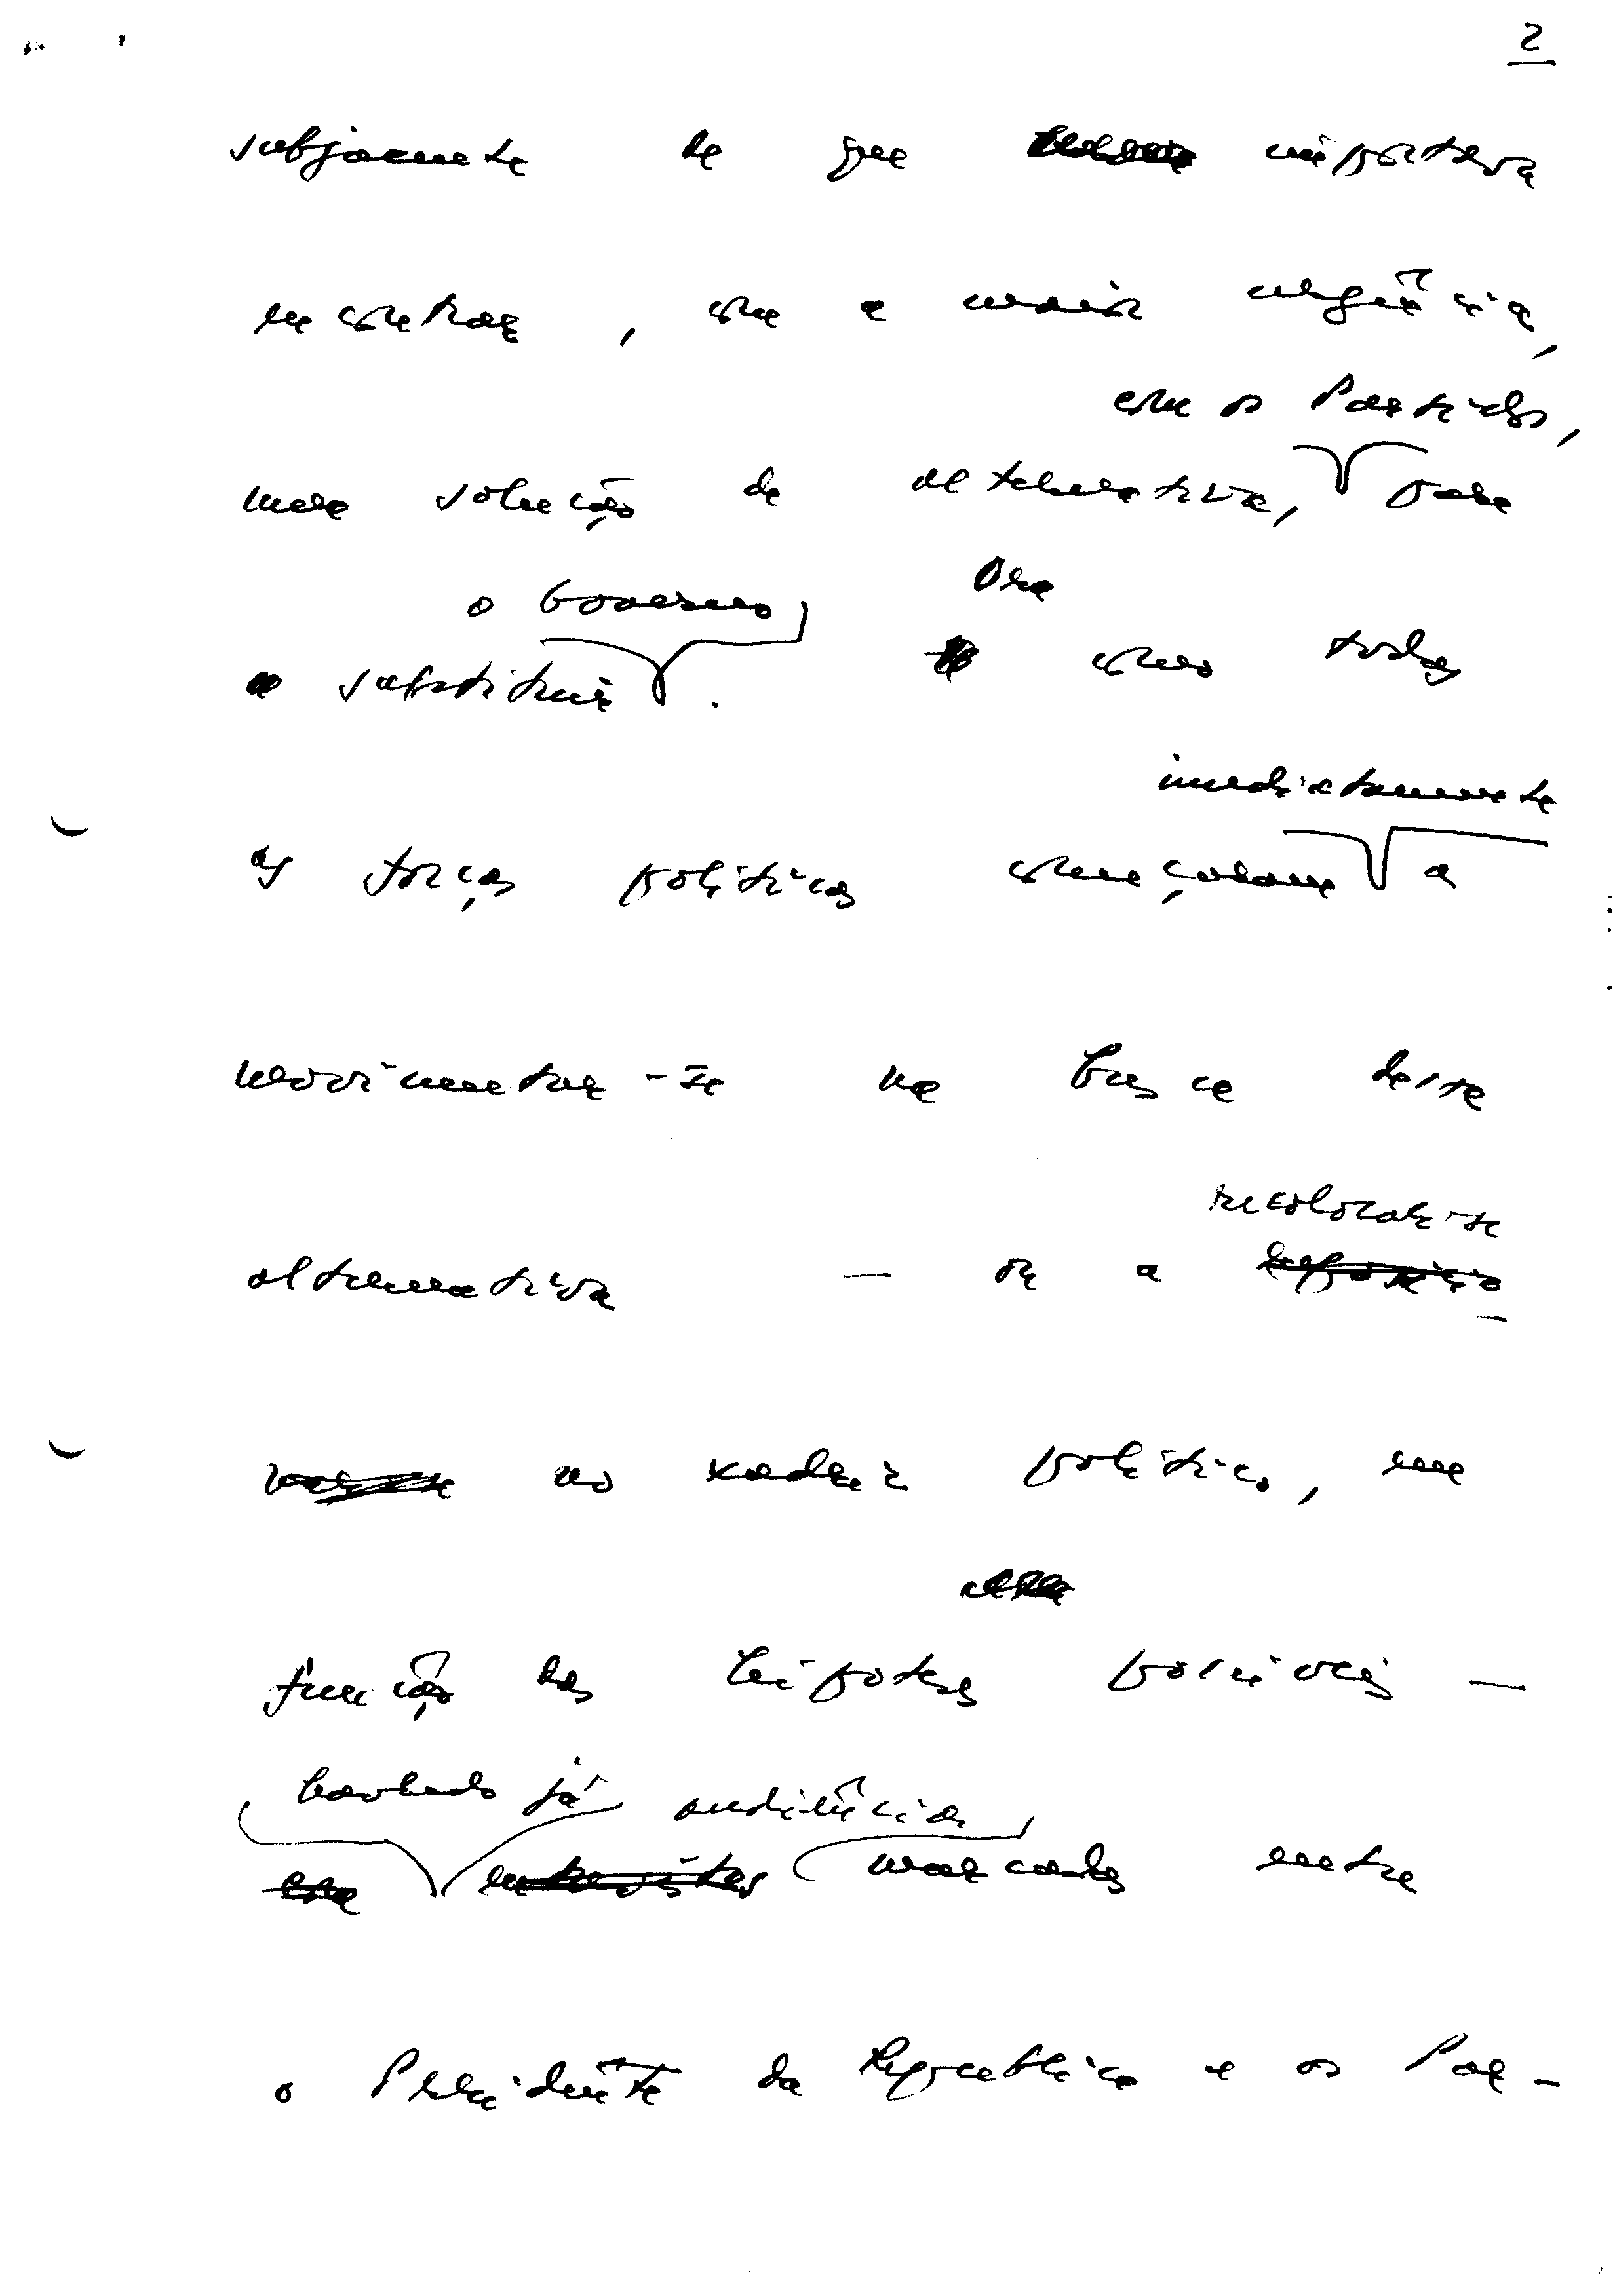 2
subjacente de que importava
encontrar, com a maior urgência,
com os Partidos,
uma solução de alternativa, para
o Governo
Ora
a substituir. como todas
imediatamente
as forças políticas começaram a
movimentar-se na busca desta
recolocar-se
alternativa — ou a
no xadrez político, em
função das hipóteses possíveis —
havendo já audiências
marcadas entre
o Presidente da Republica e os Par-